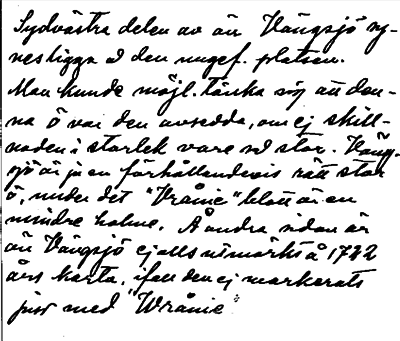 Sydvästra delen av ön Vängsjö sy-
nes ligga å den ungef. platsen.
Man kunde möjl. tänka sig att den-
na ö var den avsedda, om ej skill-
naden i storlek vore så stor. Väng-
sjö är ju en förhållandevis rätt stor
ö, under det "Vrånie" blott är en
mindre holme. Å andra sidan är
ön Vängsjö ej alls utmärkt å 1722
års karta, ifall den ej markerats
just med "Wrånie"